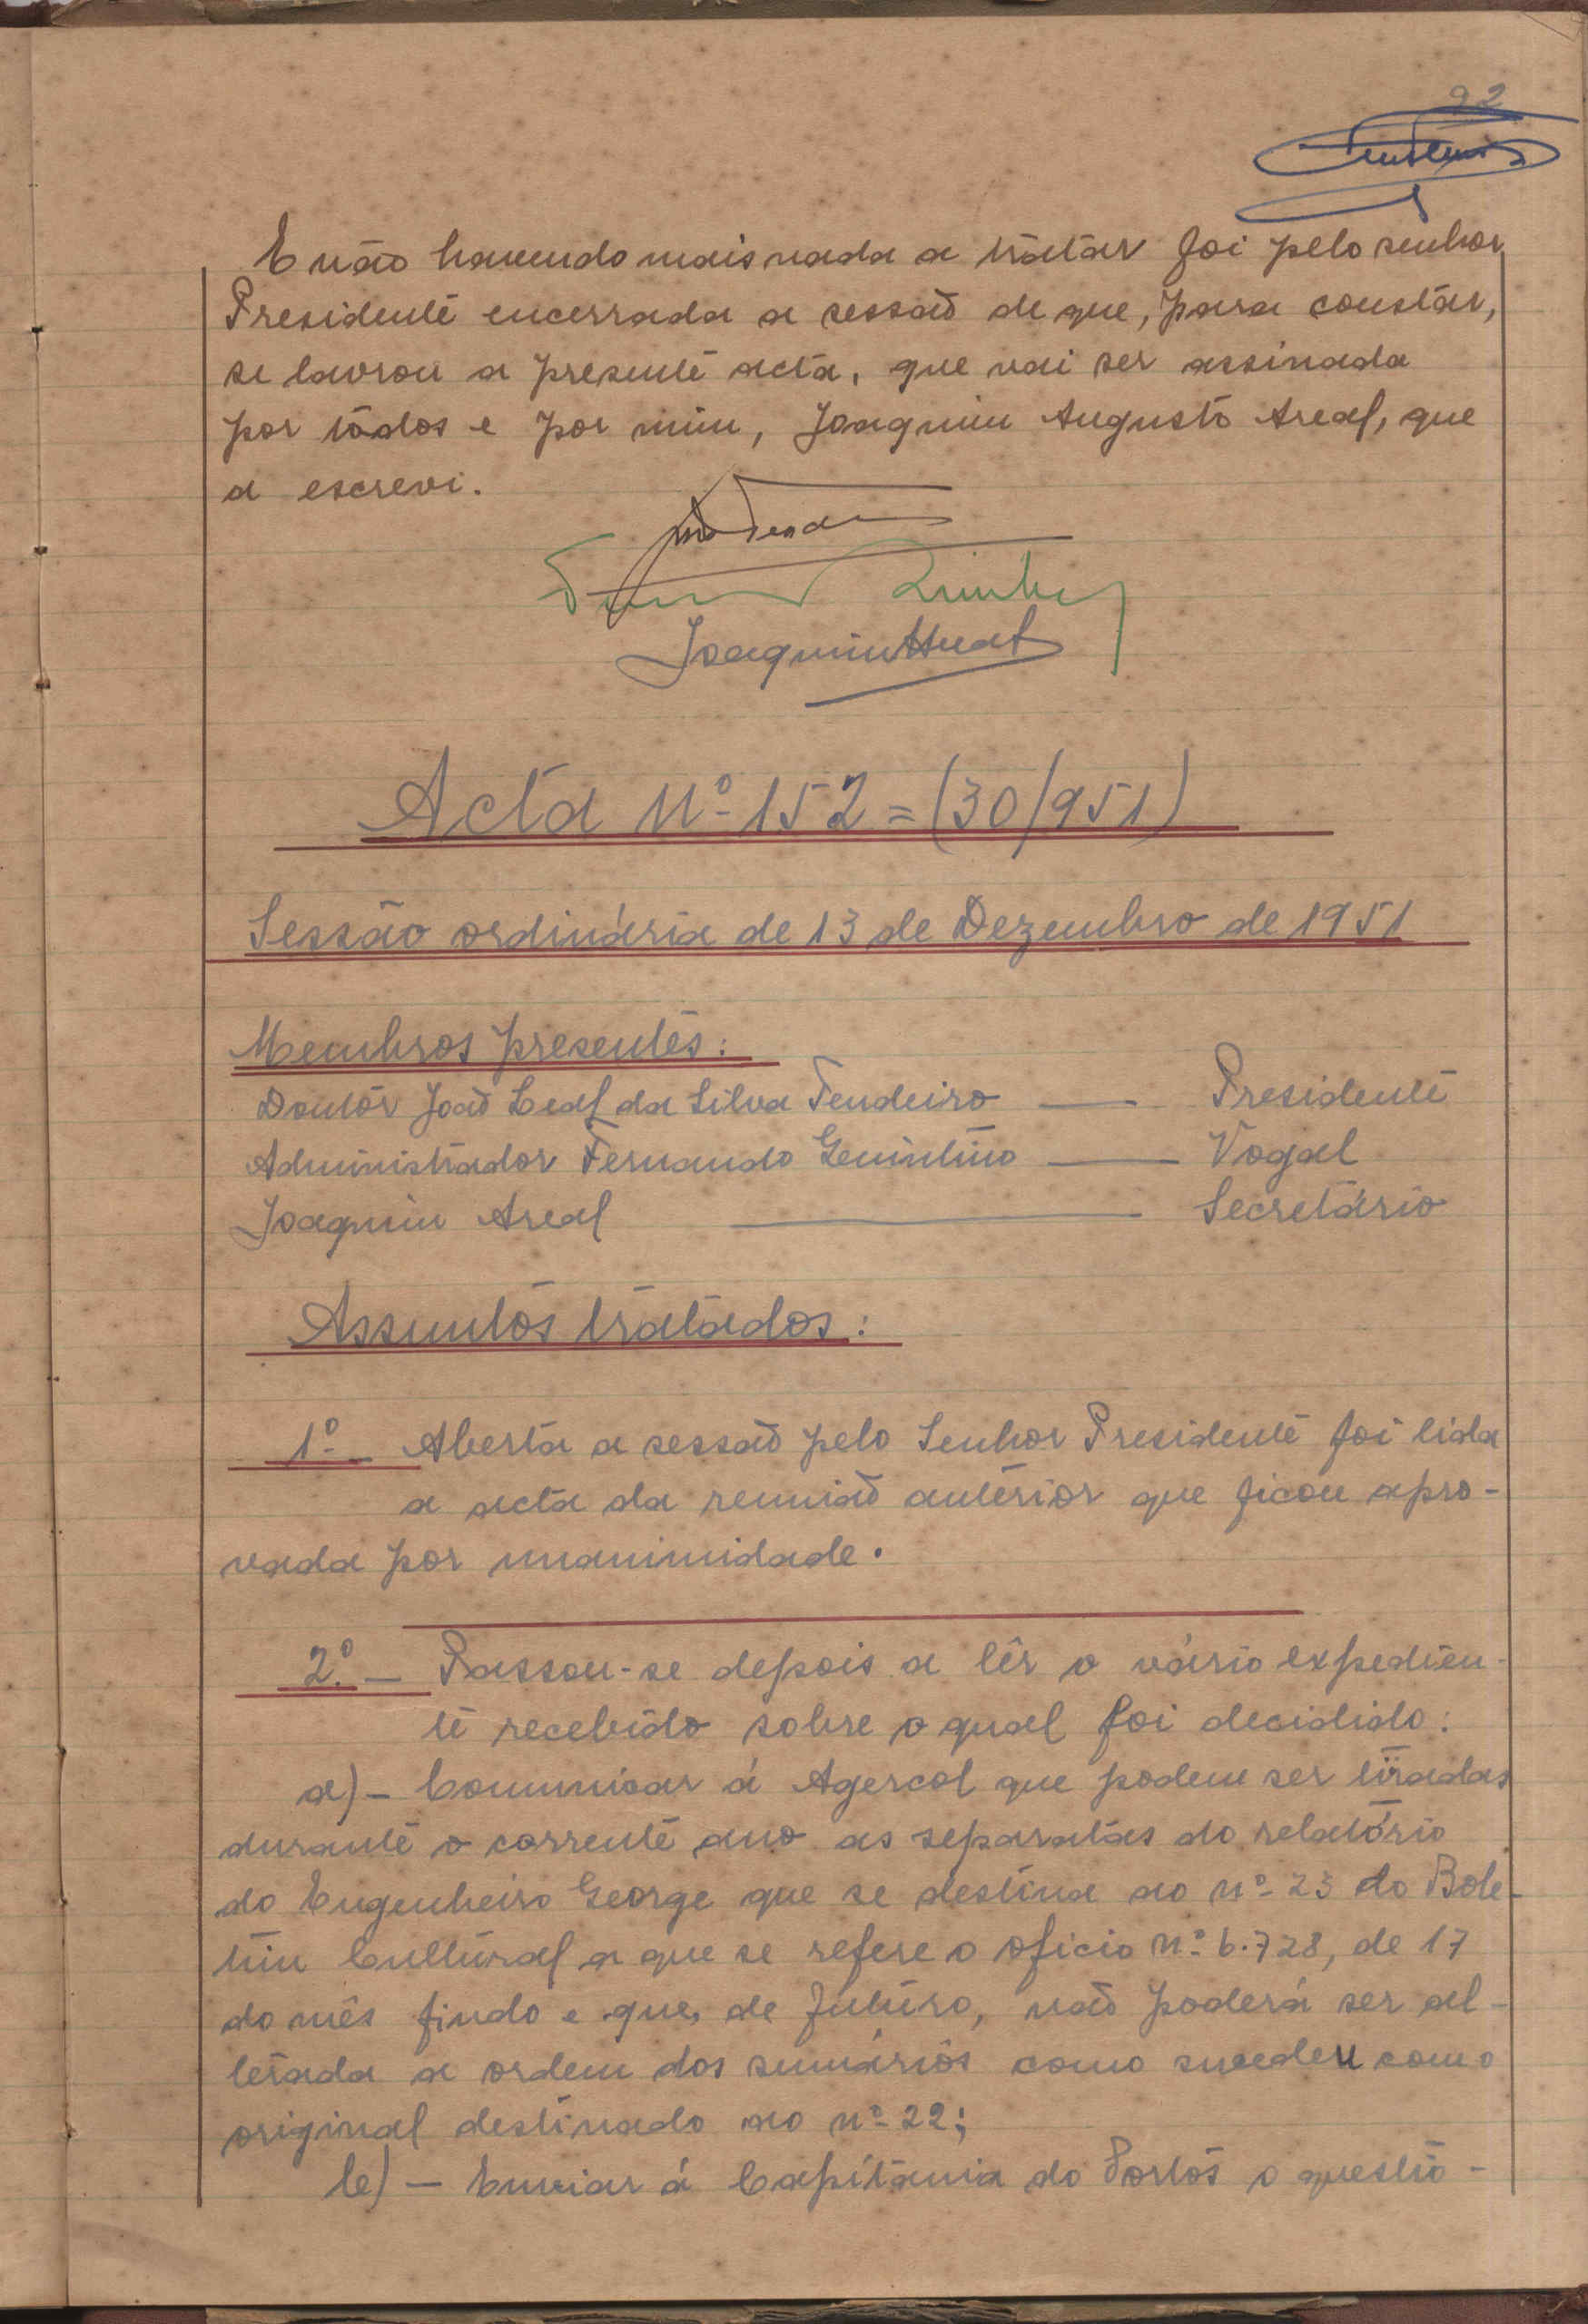 92
E não havendo mais nada a tratar foi pelo senhor
Presidente encerrada a sessão de que, para constar,
se lavrou a presente acta, que vai ser assinada
por todos e por mim, Joaquim Augusto Areal, que
a escrevi.
Joaquim Areal
Acta nº 152 = (30/951)
Sessão ordinária de 13 de Dezembro de 1951
Membros presentes:
Doutor João Leal da Silva Tendeiro — Presidente
Administrador Fernando Gemintino — Vogal
Joaquim Areal — Secretário
Assuntos tratados:
1º — Aberta a sessão pelo Senhor Presidente foi lida
a acta da reunião anterior que ficou apro-
vada por unanimidade.
2º — Passou-se depois a lêr o vário expedien-
te recebido sobre o qual foi decidido:
a) — Comunicar á Agercol que podem ser tiradas
durante o corrente ano as separatas do relatório
do Engenheiro George que se destina ao nº 23 do Bole-
tim Cultural a que se refere o oficio nº 6.728, de 17
do mês findo e que, de futuro, não poderá ser al-
terada a ordem dos sumários como sucedeu com o
original destinado ao nº 22;
b) — Enviar á Capitania do Portos o questio-